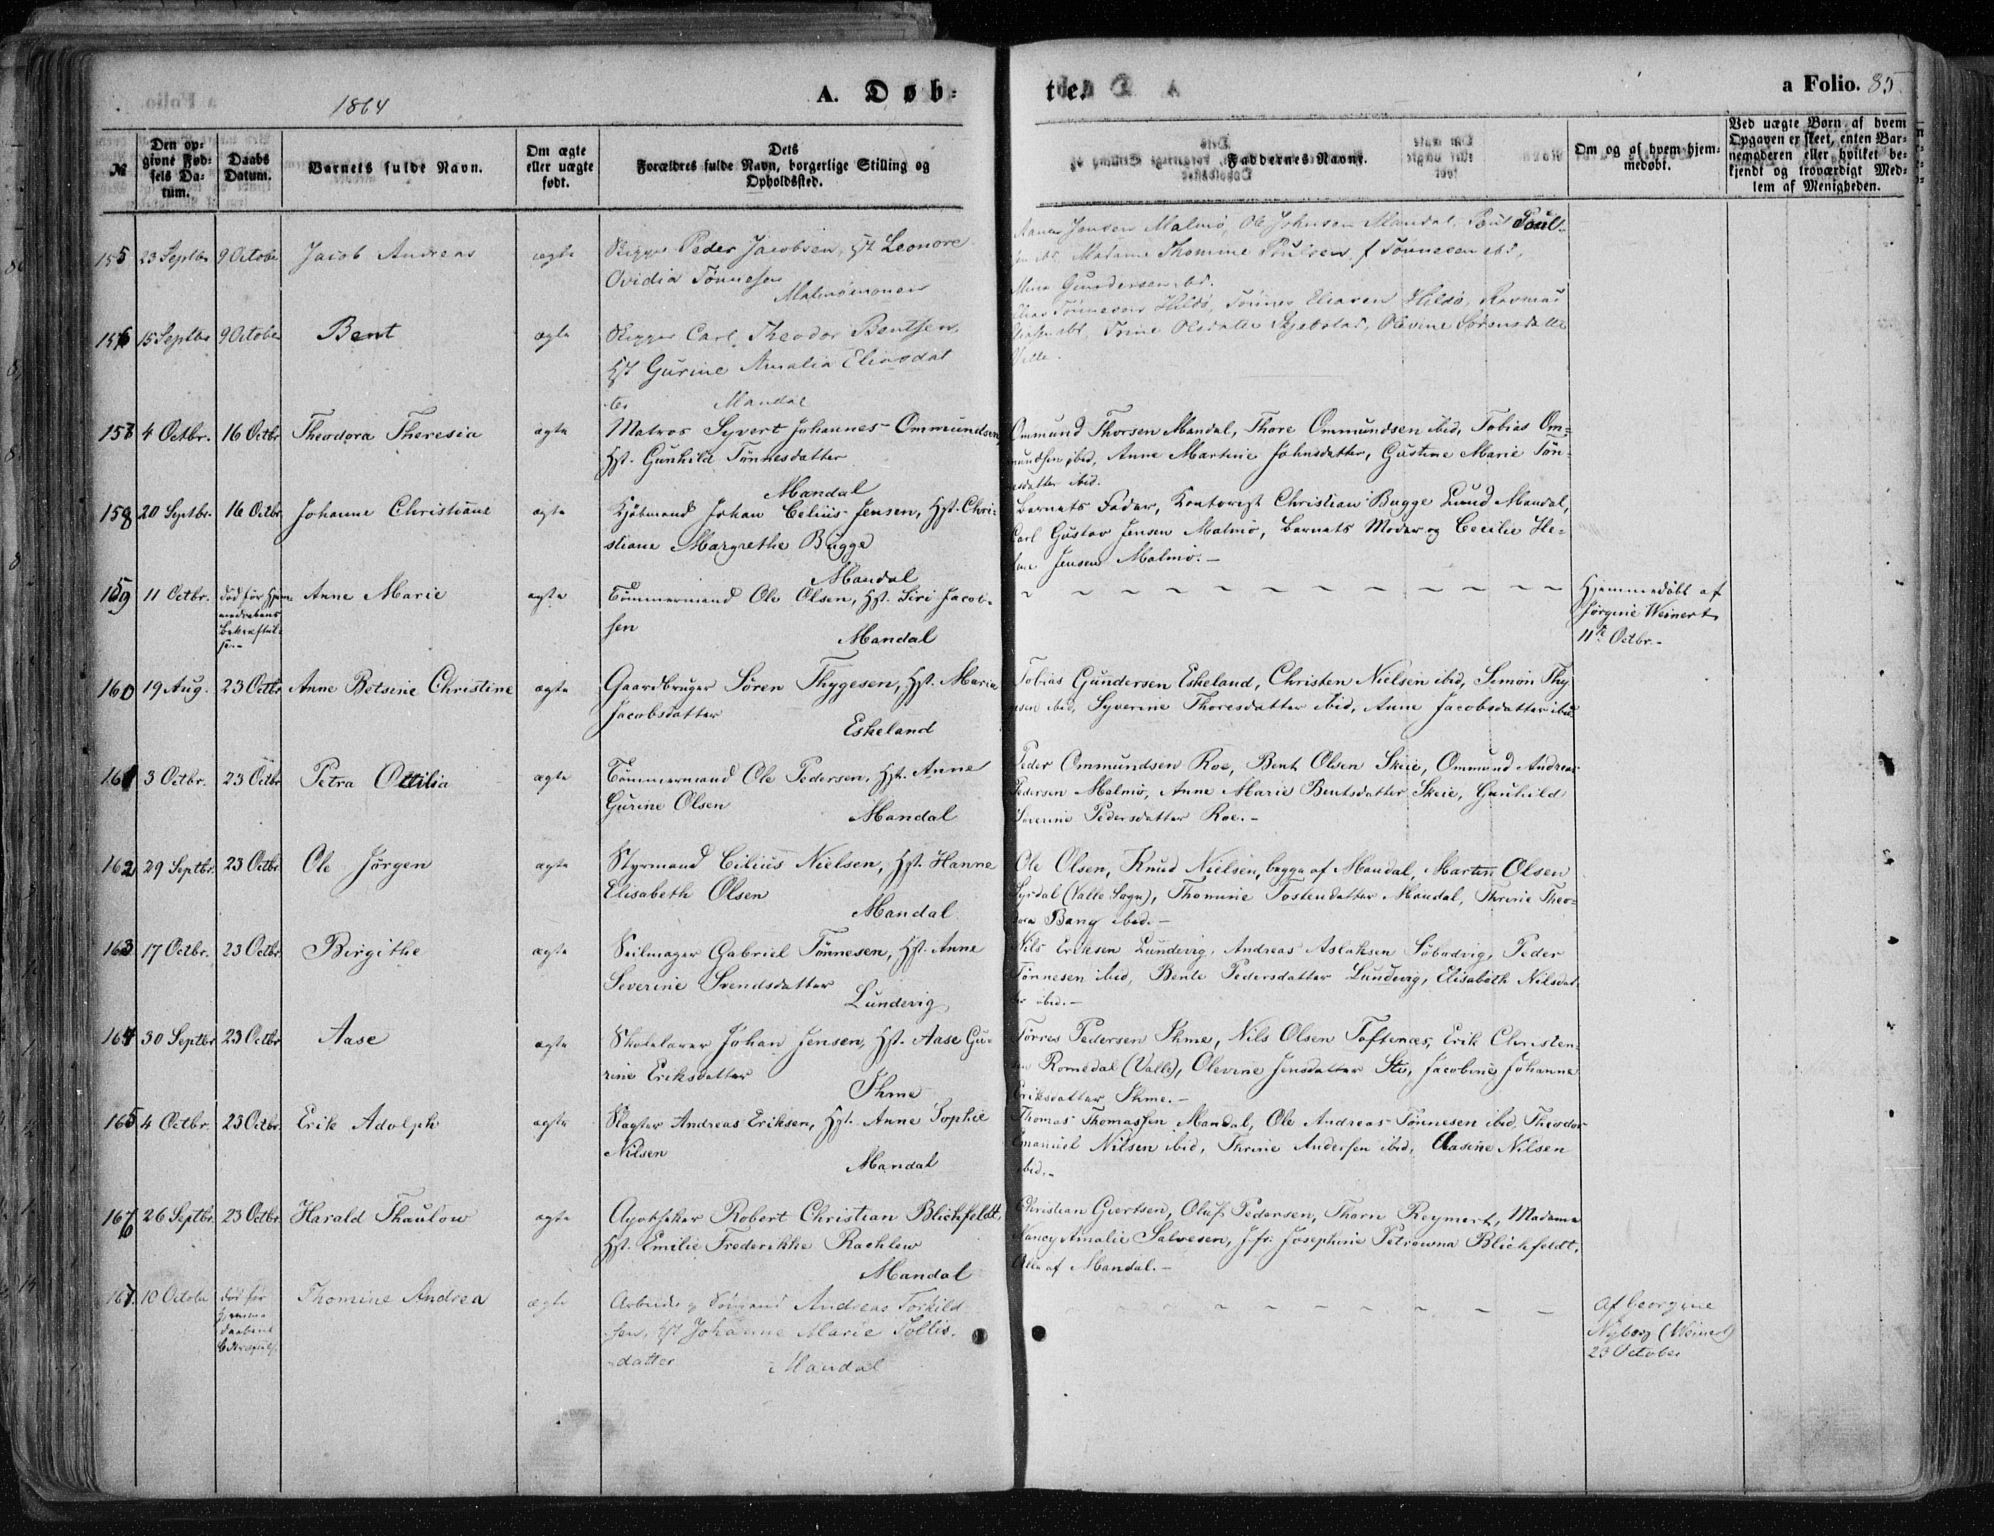 1864
A. Døb-
te.
a Folio. 85
№
Den op-
givne Fød-
sels Da-
tum.
Daabs
Datum.
Barnets fulde Navn.
Om ægte
eller uægte
født.
Dets
Forældres fulde Navn, borgerlige Stilling og
Opholdssted.
Faddernes Navne.
Om og af hvem hjem-
medøbt.
Ved uægte Børn af hvem
Opgaven er skeet, enten Bar-
nemoderen eller hvilket be-
kjendt og troværdigt Med-
lem af Menigheden.
155 23 Septbr 9 October Jacob Andreas ægte Skipper Peder Jacobsen, Hst Leonore
Ovidia Tönnesen
Jensen Malmö, Ole Johnsen Mandal, Poul Poul-
Madame Thomine Poulsen, f Tönnesen ibd,
Gundersen ibd.
156 15 Septbr 9 October Bent ægte Skipper Carl Theodor Bentsen
Hst Gurine Amalia Eliasdat
ter Mandal
Elias Tönnesen Hildö, Tönnes Eliasen Hildö, Rasmus
ibd, Trine Olsdatter Olevine Sörensdatter
157 4 Octbr. 16 Octbr Theodora Theresia ægte Matros Syvert Johannes Ommundsen,
Hst. Gunhild Tønnesdatter
Mandal
Ommund Thorsen Mandal, Thore Ommundsen ibid, Tobias Om-
mundsen ibid, Anne Martine Johnsdatter, Gustine Marie Tøn-
nesdatter ibid.
158 20 Septbr. 16 Octbr Johanne Christiane ægte Kjøbmand Johan Celius Jensen, Hst. Chri-
stiane Margrethe Bugge
Mandal
Barnets Fader, Kontorist Christian Bugge Lund Mandal,
Carl Gustav Jensen Malmö, Barnets Moder og Cecilie He-
lene Jensen Malmö.-
159 11 Octbr. død før Hjem-
medaabens
bekræftel-
se.- Anne Marie ægte Tømmermand Ole Olsen, Hst. Siri Jacob-
sen
Mandal
Hjemmedøbt af
Jørgine Weinert
11te Octbr.-
160 19 Aug. 23 Octbr Anne Betsine Christine ægte Gaardbruger Søren Thygesen, Hst. Maria
Jacobsdatter
Eskeland
Tobias Gundersen Eskeland, Christen Nielsen ibid, Simon Thy-
gesen ibid, Syverine Thoresdatter ibid, Anne Jacobsdatter ibid
161 3 Octbr. 23 Octbr Petra Ottilia ægte Tømmermand Ole Pedersen, Hst. Anne
Gurine Olsen
Mandal
Peder Ommundsen Roe, Bent Olsen Skeie, Ommund Andreas
Pedersen Malmö, Anne Marie Bentsdatter Skeie, Gunhild
Severine Pedersdatter Roe.-
162 29 Septbr. 23 Octbr. Ole Jørgen ægte Styrmand Cilius Nielsen, Hst. Hanne
Elisabeth Olsen
Mandal.
Ole Olsen, Knud Nielsen, begge af Mandal, Martin Olsen
(Valle Sogn), Thomine Tostensdatter Mandal, Thrine Theo-
dora Bang ibid.-
163 17 Octbr. 23 Octbr. Birgithe ægte Seilmager Gabriel Tønnesen, Hst. Anne
Severine Svendsdatter
Lundevig
Nils Eriksen Lundevig, Andreas Aslaksen Peder
Tønnesen ibid, Bente Pedersdatter Lundevig, Elisabeth Nilsdat-
ter ibid.-
164 30 Septbr 23 Octbr Aase ægte Skolelærer Johan Jensen, Hst. Aase Gu-
rine Eriksdatter
Ihme
Tørres Pedersen Ihme, Nils Olsen Toftenæs, Erik Christen-
sen Romedal (Valle), Olevine Jensdatter Jacobine Johanne
Eriksdatter Ihme.-
165 4 Octbr. 23 Octbr. Erik Adolph ægte Slagter Andreas Eriksen, Hst. Anne Sophie
Nilsen
Mandal
Thomas Thomassen Mandal, Ole Andreas Tønnesen ibid, Theodor
Emanuel Nilsen ibid, Thrine Andersen ibid, Aasene Nilsen
ibid.-
166 26 Septbr. 23 Octbr. Harald Thaulow ægte Apotheker Robert Christian Blichfeldt,
Hst. Emilie Frederikke Rachlew
Mandal
Christian Gjertsen, Oluf Pedersen, Thorn Reymert, Madame
Nancy Amalie Salvesen, Jfr. Josephine Petrowna Blichfeldt,
Alle af Mandal.-
167. 10 Octobe død før
Hjemme
daabens
bekræftels. Thomine Andrea ægte Arbeids og Sömand Andreas Torkild
sen, Hst Johanne Marie
datter Mandal
Af Georgine
Nyborg (Weinert)
23 October